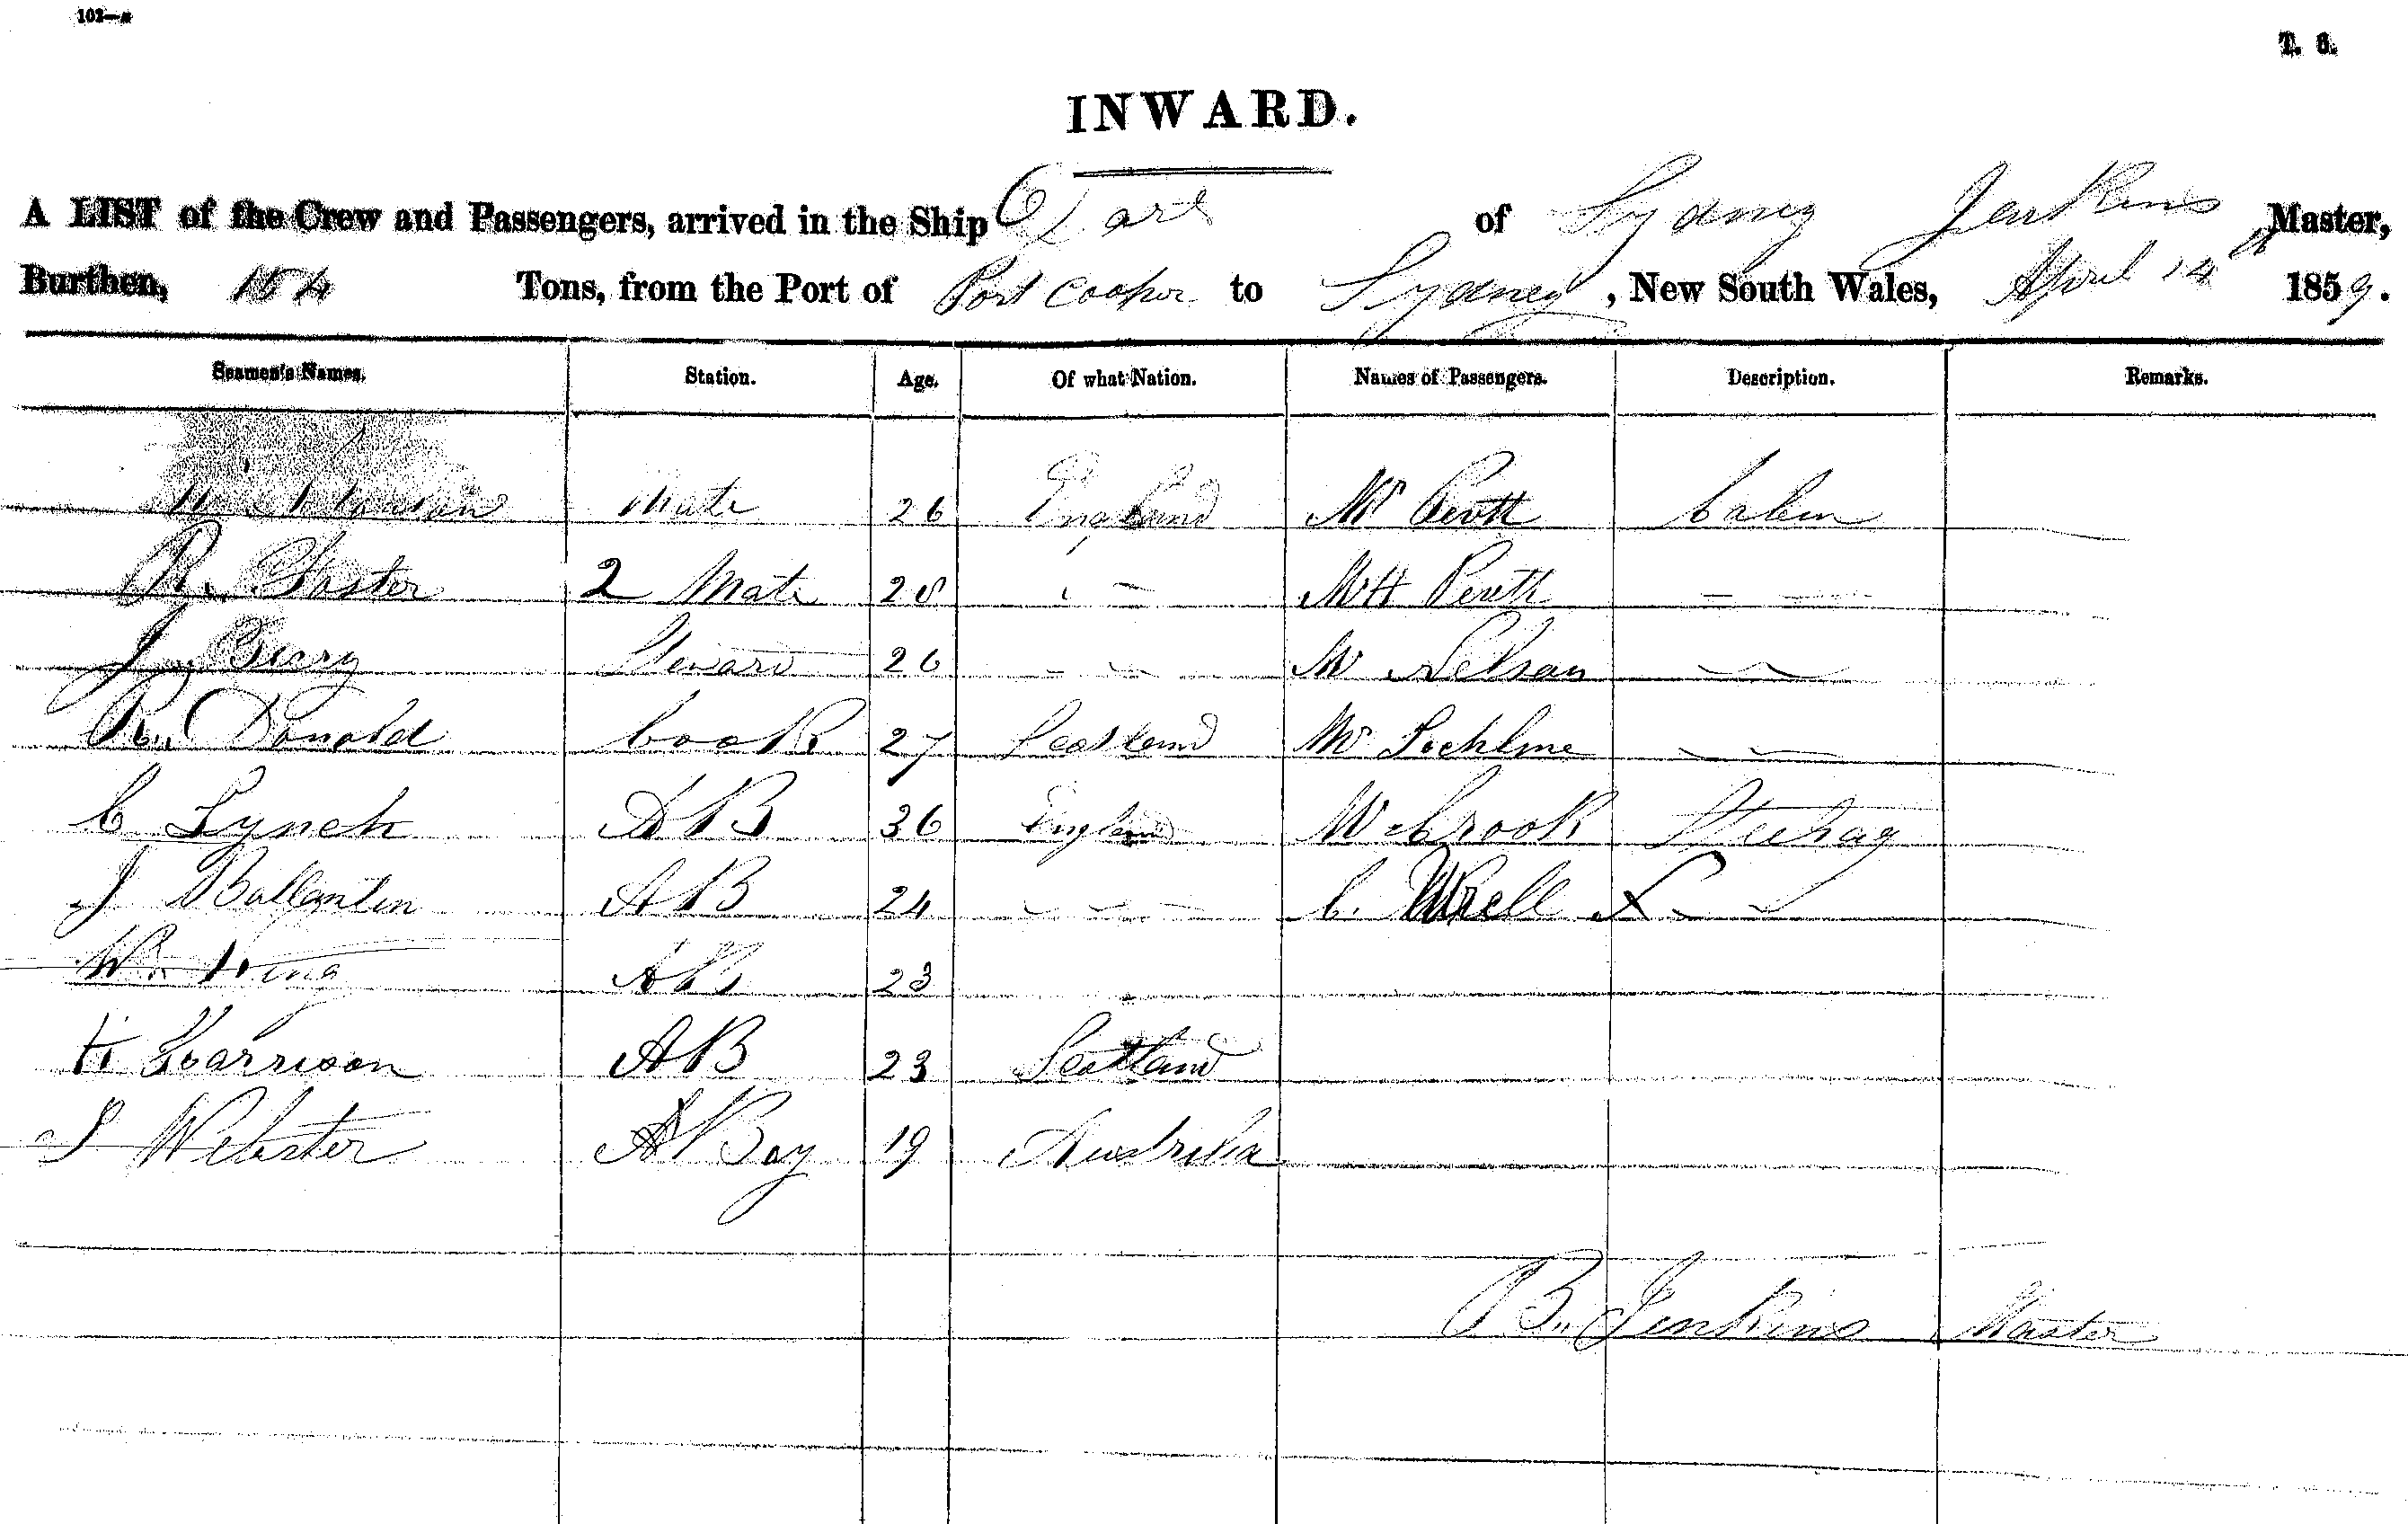 102—a
T. 6.
INWARD.
A LIST of the Crew and Passengers, arrived in the Ship of Sydney Jenkins Master,
Burthen, 154 Tons, from the Port of Port Cooper to Sydney, New South Wales, April 14th 1859.
Seamen's Names. Station. Age. Of what Nation. Names of Passengers. Description. Remarks.
Mate 26 England Mr Cabin
R. Foster 2 Mate 28 " — — —
J Berry Steward 26 — — Mr Nelson — —
R. Donald Cook 27 Scotland Mr — —
C Lynch AB 36 England Steerag
J Ballantin AB 24 — — — C.
W. King AB 23
H Harrison AB 23 Scotland
J Webster A Boy 19 Australia
B. Jenkins Master